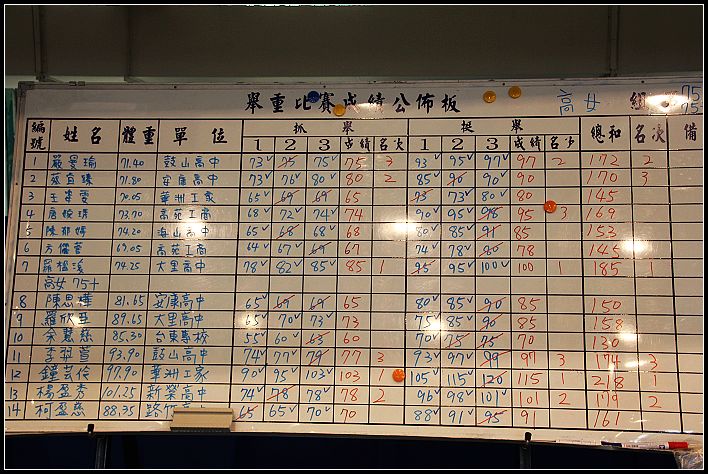 舉重比賽成績公佈板 高女 組 75 75
編號 姓名 體重 單位 抓舉 挺舉 總和 名次 備
1 2 3 成績 名次 1 2 3 成績 名次
1 嚴 瑜 71.40 鼓山高中 73 75 75 75 3 93 95 97 97 2 172 2
2 蔡宜臻 71.80 安康高中 73 76 80 80 2 85 90 90 90 170 3
3 王 雯 70.05 華洲工家 65 69 69 65 73 73 80 80 145
4 唐 琇 73.70 高苑工商 68 72 74 74 90 95 98 95 3 169
5 陳 婷 74.20 海山高中 65 68 68 68 80 85 91 85 153
6 方儒萱 69.05 高苑工商 64 67 69 67 74 78 80 78 145
7 羅 溱 74.25 大里高中 78 82 85 85 1 95 95 100 100 1 185 1
高女 75+
8 陳思樺 81.65 安康高中 65 69 69 65 80 85 90 85 150
9 羅欣 89.65 大里高中 65 70 73 73 75 85 90 85 158
10 余慧慈 85.30 台東專校 55 60 63 60 70 75 75 70 130
11 李翠萱 93.90 鼓山高中 74 77 79 77 3 93 97 99 97 3 174 3
12 鐘芸伶 97.90 華洲工家 90 95 103 103 1 105 115 120 115 1 218 1
13 楊盈秀 101.25 新榮高中 74 78 78 78 2 96 98 101 101 2 179 2
14 柯盈慈 88.35 路竹高中 65 65 70 70 88 91 95 91 161